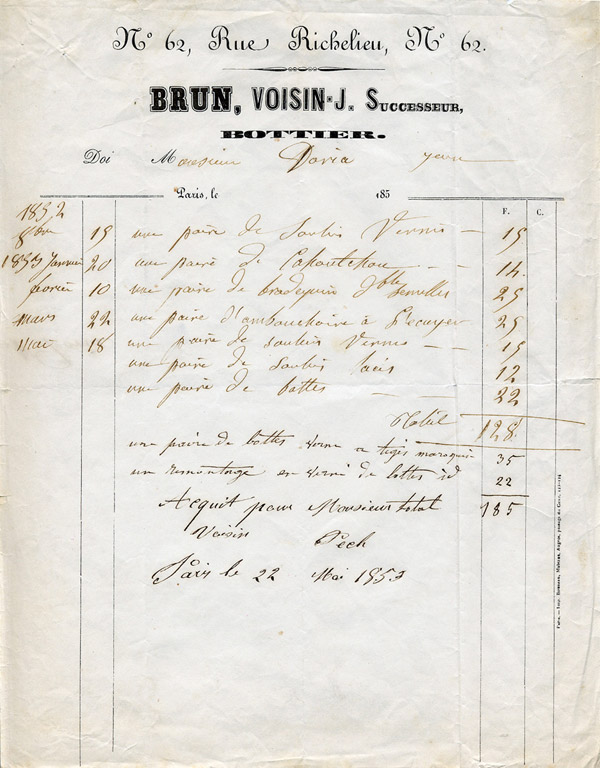 Nº 62, Rue Richelieu, Nº 62.
BRUN, VOISIN-J. SUCCESSEUR,
BOTTIER.
Doi Monsieur Doria
Paris, le 185
F. C.
1852
8bre 15 une paire de Souliers Vernis 15
1853 Janvier 20 une paire de Caoutchou 14.
fevrier 10 une paire de brodequin dble Semelles 25
mars 22 une paire d'ambouchoire à l'ecuyer 25
mai 18 une paire de souliers Vernis 15
une paire de Souliers lacés 12
une paire de bottes 22
Total 128
une paire de bottes verni a tiges maroquin 35
un remontage en verni de bottes id 22
Acquit pour Monsieur total 185
Voisin Pech
Paris le 22 Mai 1853